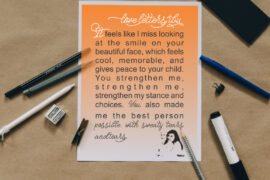 love letters you
It feels like I miss looking
at the smile on your
beautiful face, which feels
cool, memorable, and
gives peace to your child.
You strengthen me,
strengthen me,
strengthen my stance and
choices. You also made
me the best person
possible with sweaty tears
and tears.